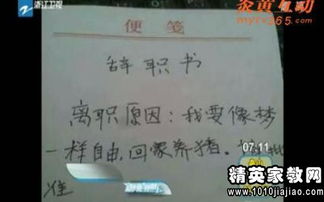 浙江卫视
炎黄互动
mytv365.com
便笺
辞职书
离职原因：我要像梦
一样自由，回家养猪。
准
07:11
精英家教网
www.1010jiajiao.com